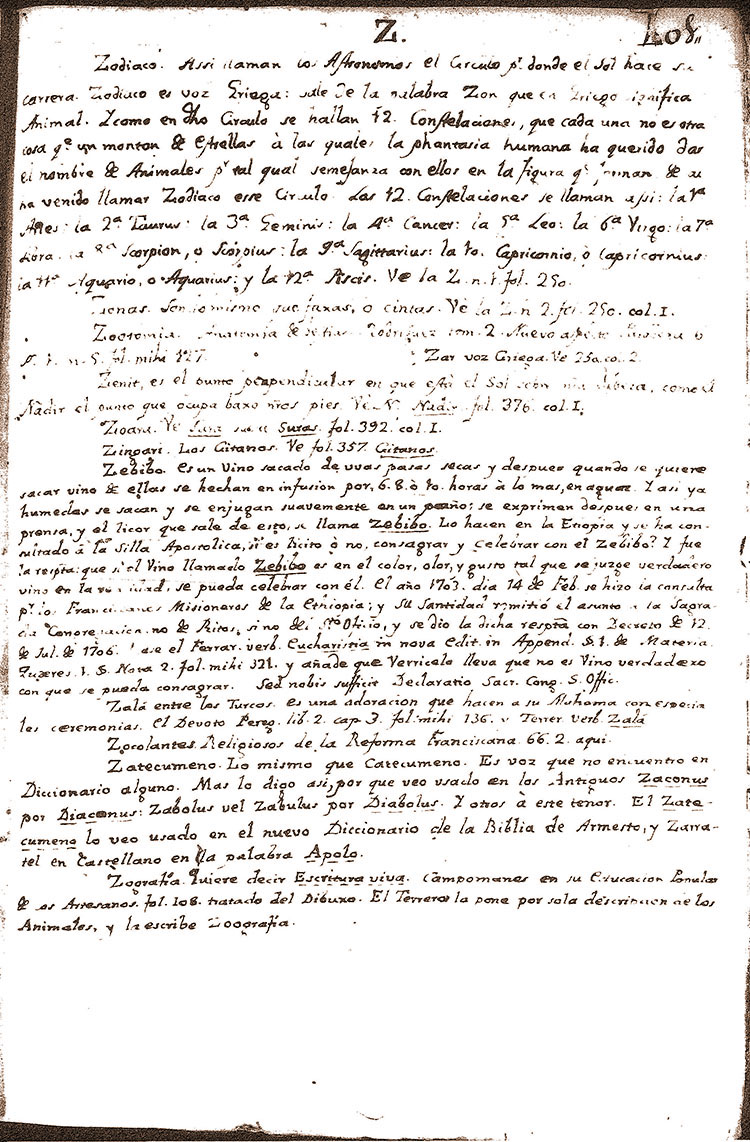 Z.
108.
Zodiaco. Assi llaman los Astronomos el Circulo pr. donde el Sol hace su
carrera. Zodiaco es voz Griega: sale de la palabra Zon que en Griego significa
Animal. Y como en dho Circulo se hallan 12. Constelaciones, que cada una no es otra
cosa qe. un monton de estrellas à las quales la phantasia humana ha querido dar
el nombre de Animales pr. tal qual semejanza con ellos en la figura qe. forman de aí
ha venido llamar Zodiaco esse Circulo. Las 12. Constelaciones se llaman assi: la 1ª.
Aries: la 2ª. Taurus: la 3ª. Geminis: la 4ª. Cancer: la 5ª. Leo: la 6ª. Virgo: la 7ª
Libra. la 8ª. Scorpion, o Scorpius: la 9ª. Sagittarius: la 10. Capricornio, o Capricornius:
la 11ª. Aquario, o Aquarius: y la 12ª. Piscis. Ve la Z. n. 1. fol. 250.
Zonas. Son lo mismo que faxas, o cintas. Ve la Z. n. 2. fol. 250. col. 1.
Zootomia. Anatomia de bestias. Rodriguez tom. 2. Nuevo aspecto
n. 5. fol. mihi 127. Zar voz Griega. Ve 250. col. 2.
Zenit, es el punto perpendicular en que está el Sol sobre nra cabeza, como el
Nadir el punto que ocupa baxo nros pies. Ve N. Nadir. fol. 376. col. 1.
Zioara. Ve Sura sura Suras. fol. 392. col. 1.
Zingari. Los Gitanos. Ve fol. 357. Gitanos.
Zebibo. Es un Vino sacado de uvas pasas secas y despues quando se quiere
sacar vino de ellas se hechan en infusion por, 6. 8. ò 10. horas à lo mas, en agua. Y asi ya
humedas se sacan y se enjugan suavemente en un paño; se exprimen despues en una
prensa, y el licor que sale de esto, se llama Zebibo. Lo hacen en la Etiopia y se ha con-
sultado à la Silla Apostolica, si es licito ò no, consagrar y celebrar con el Zebibo? Y fue
la respta: que si el Vino llamado Zebibo es en el color, olor, y gusto tal que se juzge verdadero
vino en la realidad, se pueda celebrar con él. El año 1703. dia 14 de Feb. se hizo la consulta
pr. los Franciscanos Misioneros de la Ethiopia; y Su Santidad remitió el asunto a la Sagra-
da Congregacion no de Ritos, sino del Sto. Oficio, y se dio la dicha respta con Decreto de 12.
de Jul. de 1706. Vease el Ferrar. verb. Eucharistia in nova edit. in Append. §. 1. de Materia.
Quaeres. 1. §. Nota 2. fol. mihi 321. y añade que Verricelo lleva que no es Vino verdadero
con que se pueda consagrar. Sed nobis sufficit Declaratio Sacr. Cong. S. Offic.
Zalá entre los Turcos. es una adoracion que hacen a su Mahoma con especia
les ceremonias. El Devoto Pereg. lib. 2. cap. 3. fol. mihi 136. y Terrer verb. Zalá
Zocolantes. Religiosos de la Reforma Franciscana. 66. 2. aqui.
Zatecumeno. Lo mismo que Catecumeno. Es voz que no encuentro en
Diccionario alguno. Mas lo digo asi, por que veo usado en los Antiguos Zaconus
por Diaconus: Zabolus vel Zabulus por Diabolus. Y otros à este tenor. El Zate-
cumeno lo veo usado en el nuevo Diccionario de la Biblia de Armesto, y Zarra-
tel en Castellano en la palabra Apolo.
Zografia. Quiere decir Escritura viva. Campomanes en su Educacion Popular
de los Artesanos. fol. 108. tratado del Dibuxo. El Terreros la pone por sola descripcion de los
Animales, y la escribe Zoografia.